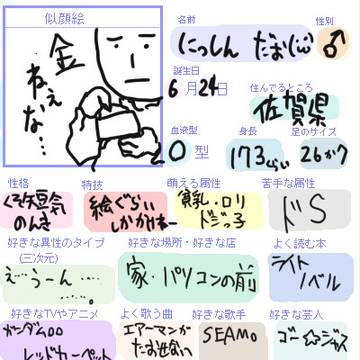 似顔絵
金
ねぇ
な…
名前
性別
にっしん たおじい
♂
誕生日
6月24日
住んでるところ
佐賀県
血液型
身長
足のサイズ
O型
173くらい
26かワ
性格
特技
萌える属性
苦手な属性
のんき
絵ぐらい
しかかけねー
貧乳・ロリ
ドジっ子
ドS
好きな異性のタイプ
(三次元)
好きな場所・好きな店
よく読む本
え…うーん……
……。
家・パソコンの前
ライト
ノベル
好きなTVやアニメ
よく歌う曲
好きな歌手
好きな芸人
ガンダム00
レッドカーペット
エアーマンが
たおせない
SEAMO
ゴー☆ジャス